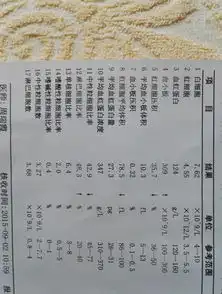 项 目 结果 单位 参考范围
1 白细胞 7.62 ×10^9/L 4-10
2 红细胞 4.55 ×10^12/L 3.5-5.5
3 血红蛋白 124 g/L 120-160
4 血小板 309 ×10^9/L 100-300
5 红细胞压积 35.7 % 36-50
6 平均血小板体积 fL 6-13
7 血小板压积 0.32 % 0.1-0.5
8 红细胞平均体积 78.5 fL 86-100
9 平均血红蛋白量 pg
10 平均血红蛋白浓度 347 g/L 310-370
11 中性粒细胞比率 42.9 ↓ % 45-77
12 淋巴细胞比率 48.3 % 20-40
13 单核细胞比率 6.4 % 3-8
14 嗜酸性粒细胞比率 % 0.5-5
15 嗜碱性粒细胞比率 0.4 % 0-1
16 中性粒细胞数 3.27 ×10^9/L 2-7.7
17 淋巴细胞数 3.68 ×10^9/L
医师: 周瑞霞 核收时间:2015-09-02 10:39